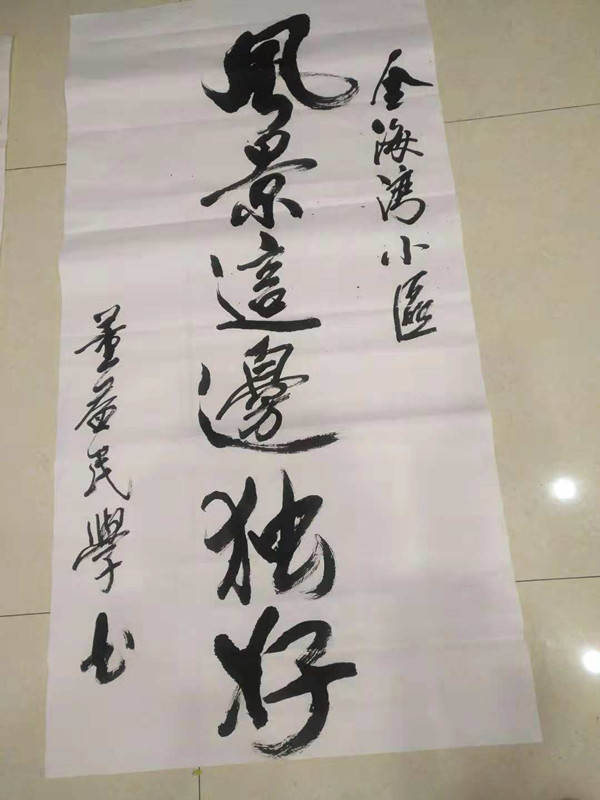 金海湾小區
風景這邊独好
董益民學书